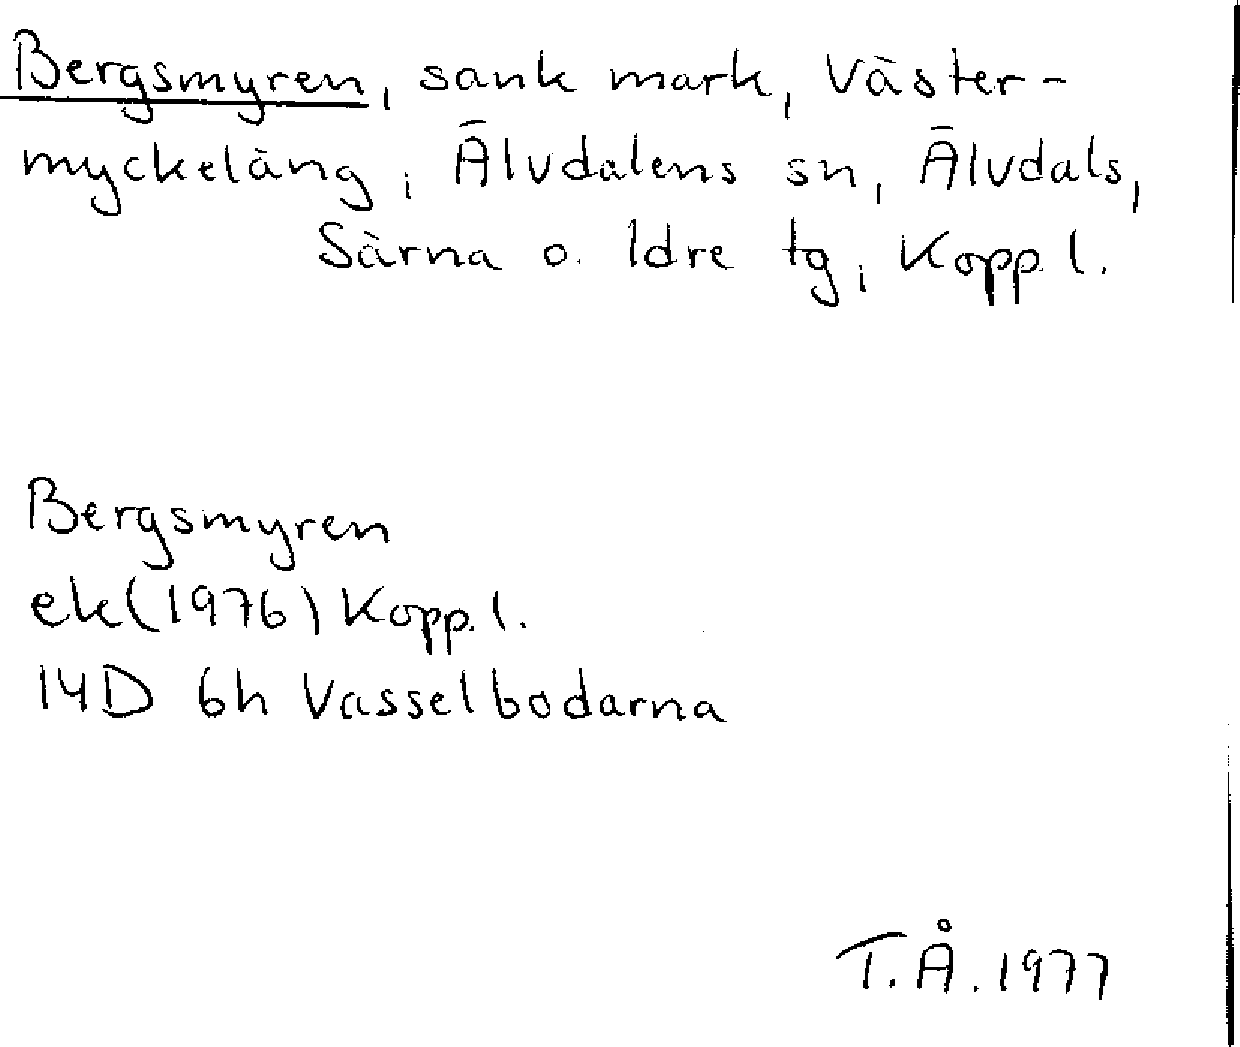 Bergsmyren, sank mark, Väster-
myckeläng, Älvdalens sn, Älvdals,
Särna o. Idre tg, Kopp. l.
Bergsmyren
ek(1976) Kopp. l.
14D 6h Vasselbodarna
T.Å. 1977